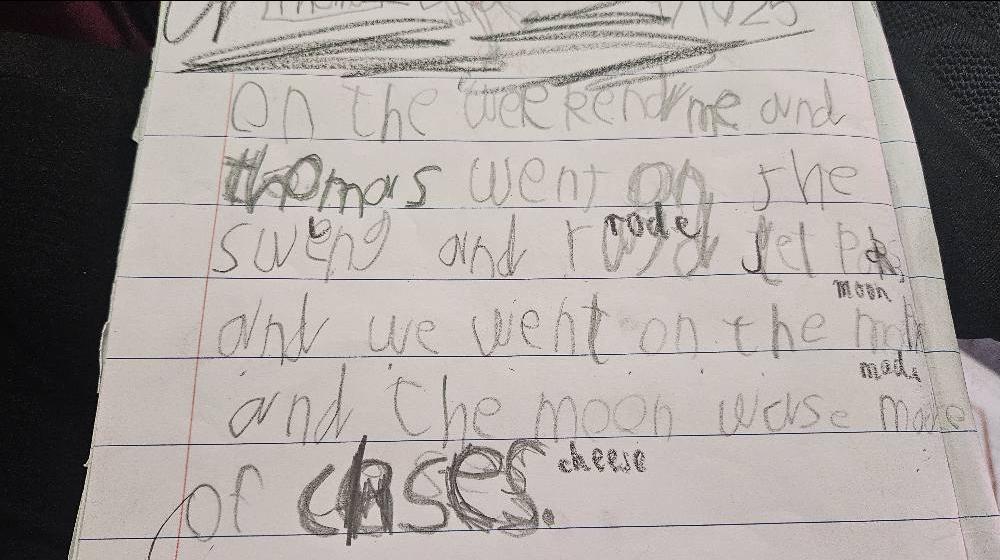 On the weekend me and
thomas went on the
sweng and rode jet
moon
and we went on the
made
and the moon wase made
of cheese